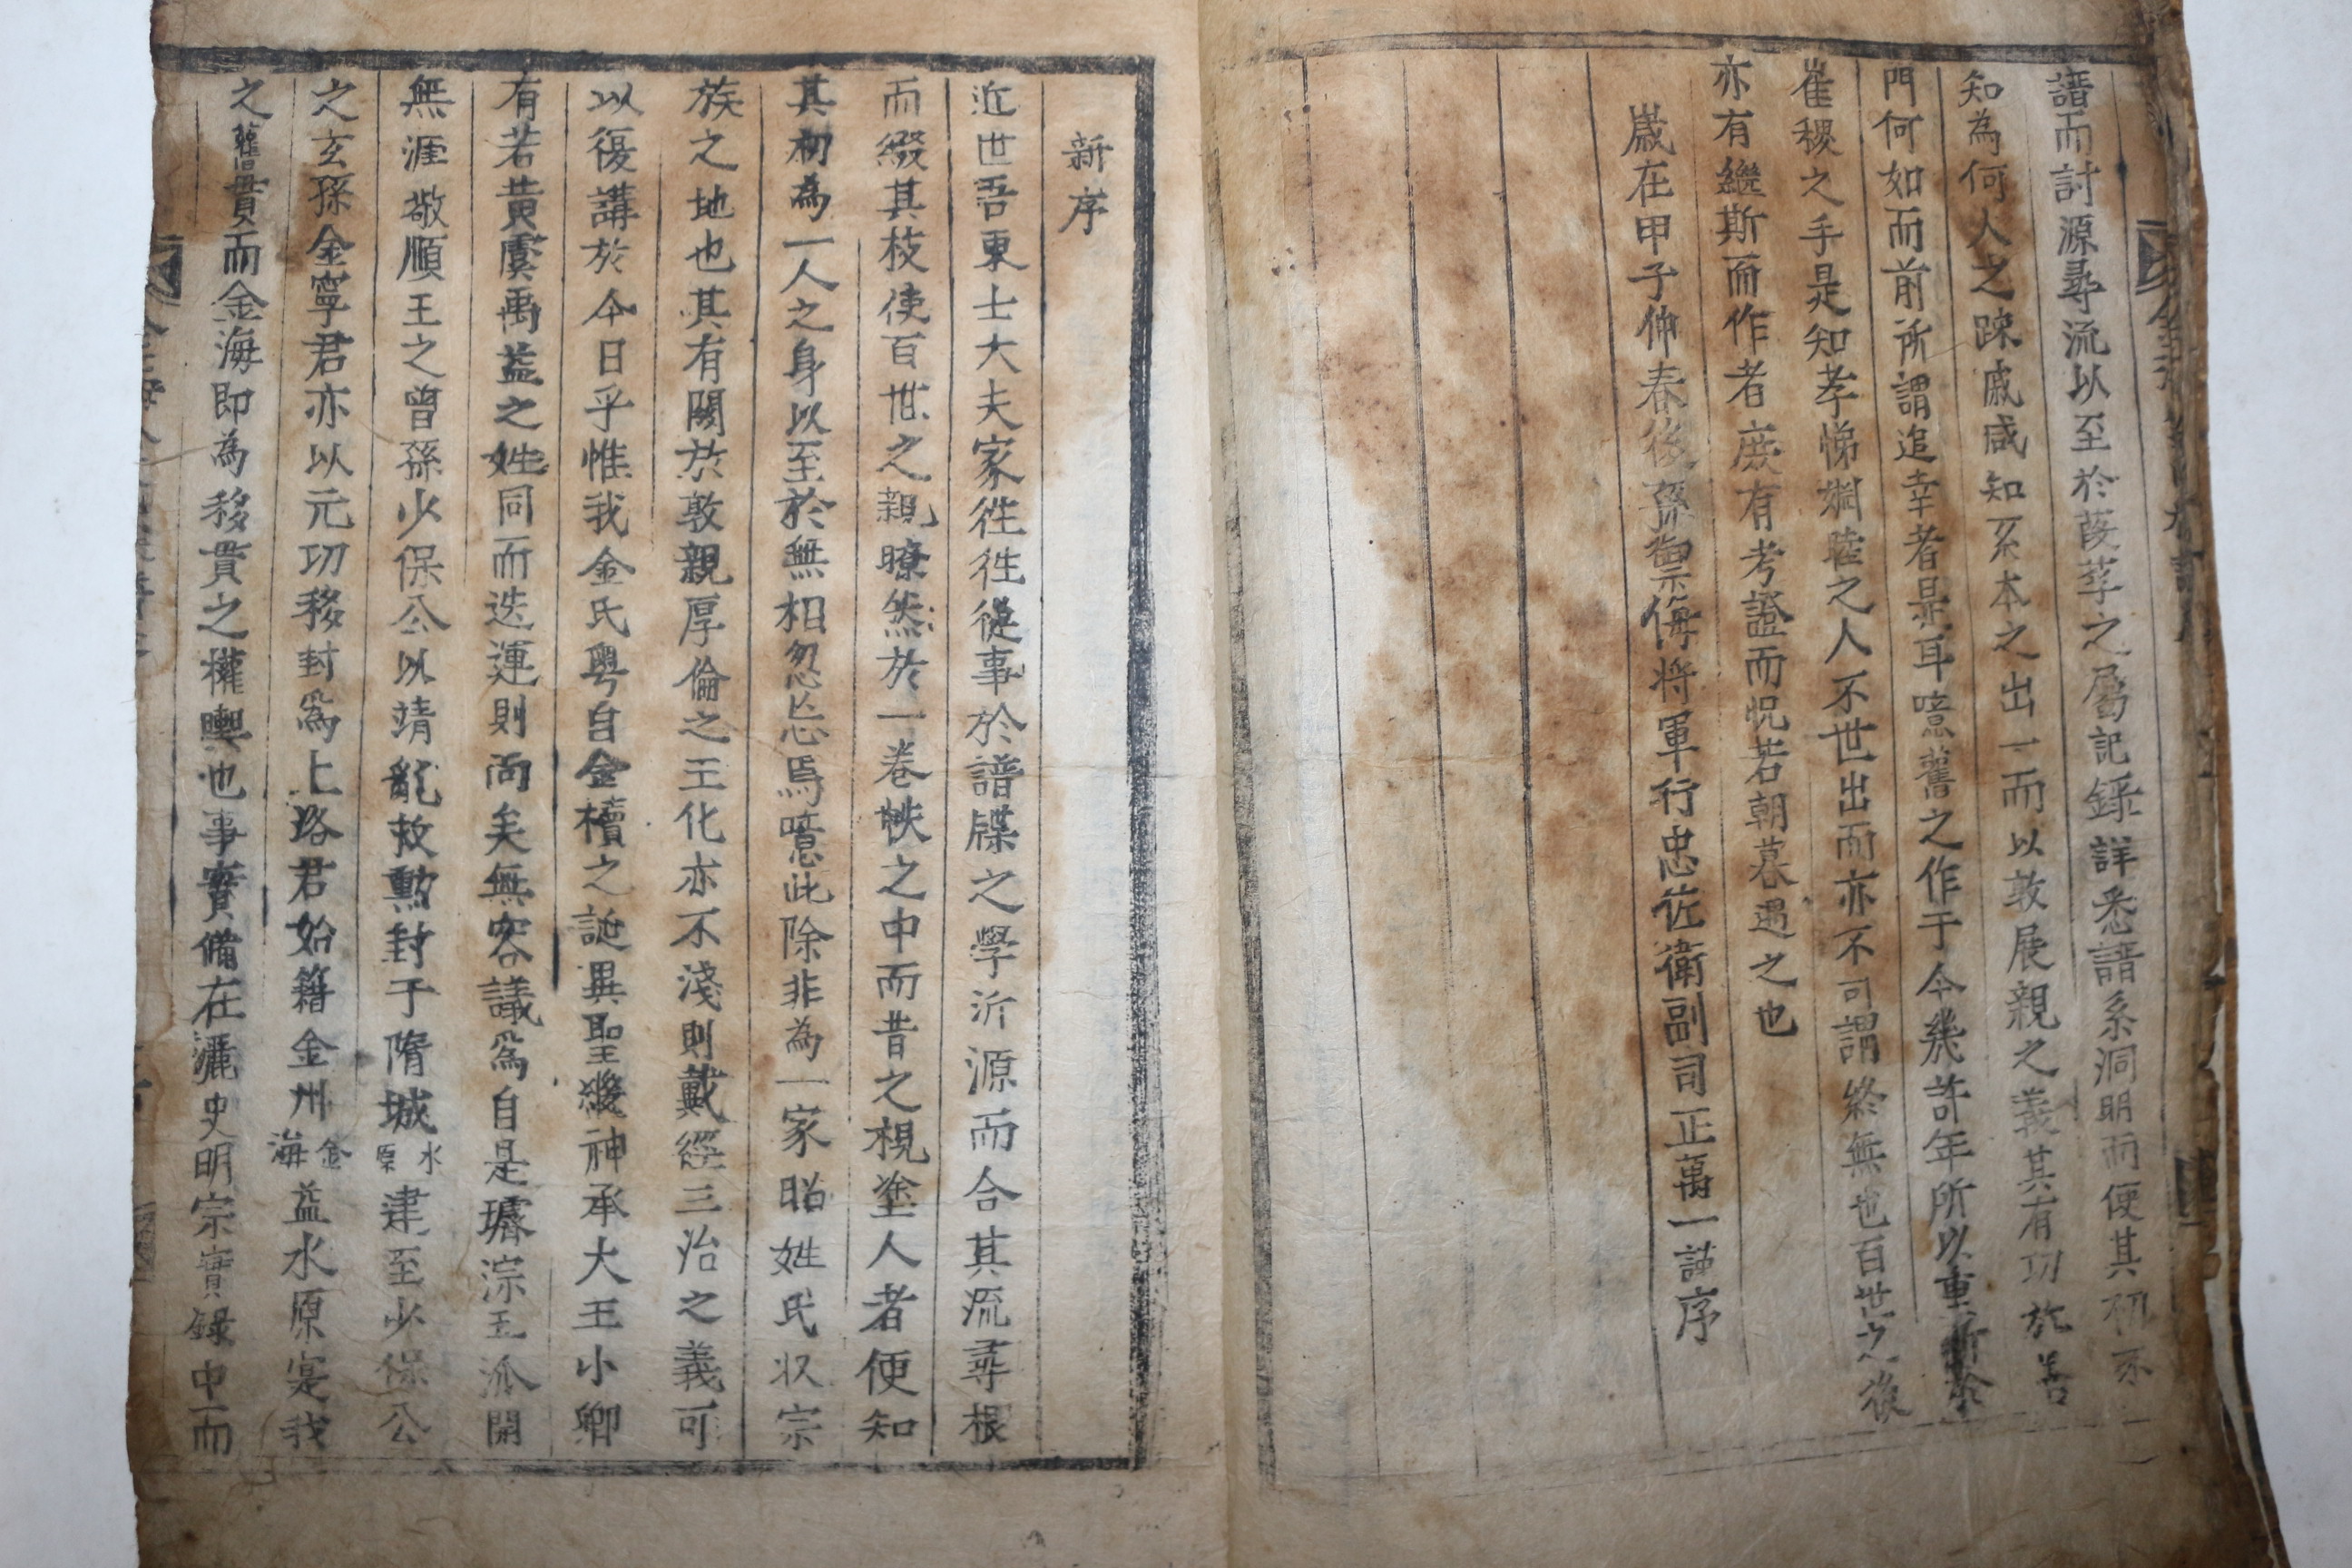 譜而討源尋流以至於葭莩之屬記錄詳悉譜系洞明而便其初不
知為何人之踈戚咸知系本之出一而以敦展親之義其有功於善
門何如而前所謂追幸者是耳噫舊之作于今幾許年所以重新於
崔稷之手是知孝悌婣睦之人不世出而亦不可謂終無也百世之後
亦有繼斯而作者庶有考證而怳若朝暮遇之也
歲在甲子仲春後孫禦侮將軍行忠佐衛副司正萬一謹序
新序
近世吾東士大夫家徃徃從事於譜牒之學沂源而合其流尋根
而綴其枝使百世之親瞭然於一卷帙之中而昔之視塗人者便知
其初為一人之身以至於無相忽忘焉噫此除非為一家昭姓氏収宗
族之地也其有關於敦親厚倫之王化亦不淺則戴經三治之義可
以復講於今日乎惟我金氏粤自金櫝之誕異聖繼神承大王小卿
有若黄虞禹益之姓同而迭運則尚矣無容議焉自是璿淙玉派開
無涯敬順王之曾孫少保公以靖亂敉勲封于隋城水原逮至少保公
之玄孫金寧君亦以元功移封爲上洛君始籍金州金海益水原寔我
之舊貫而金海即為移貫之權輿也事實備在麗史明宗實録中而